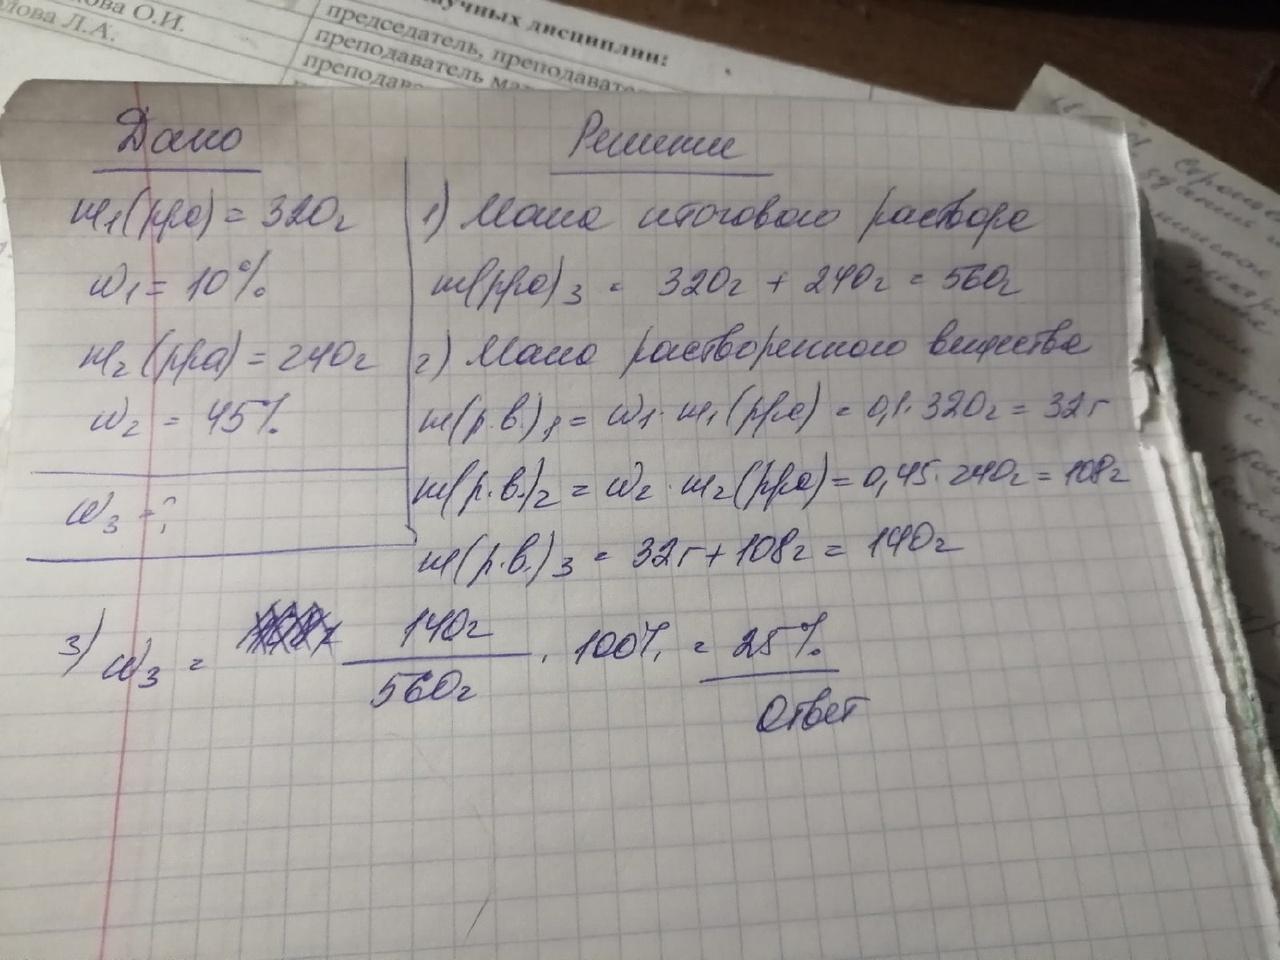 ова О.И.
лова Л.А.
научных дисциплин:
председатель, преподавате
преподаватель ма
преподава
Дано
m₁(рра) = 320г
ω₁ = 10%
m₂(рра) = 240г
ω₂ = 45%
ω₃ = ?
Решение
1) Масса итогового раствора
m(рра)₃ = 320г + 240г = 560г
2) Масса растворенного вещества
m(р.в.)₁ = ω₁ · m₁(рра) = 0,1 · 320г = 32г
m(р.в.)₂ = ω₂ · m₂(рра) = 0,45 · 240г = 108г
m(р.в.)₃ = 32г + 108г = 140г
3) ω₃ = 140г / 560г · 100% = 25%
Ответ